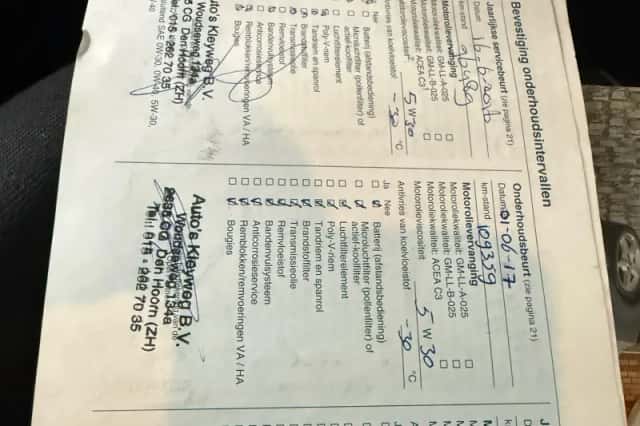 Bevestiging onderhoudsintervallen
Jaarlijkse servicebeurt (zie pagina 21)
Datum
km-stand
Motorolievervanging
Motoroliekwaliteit: GM-LL-A-025
Motoroliekwaliteit: GM-LL-B-025
Motoroliekwaliteit: ACEA C3
Motorolieviscositeit 5 W 30
Antivries van koelvloeistof -30 °C
Ja Nee
Batterij (afstandsbediening)
Microluchtfilter (pollenfilter) of
actief-koolfilter
Luchtfilterelement
Poly-V-riem
Tandriem en spanrol
Brandstoffilter
Transmissieolie
Remvloeistof
Bandenvulsysteem
Anticorrosieservice
Remblokken/remvoeringen VA / HA
Bougies
Auto's Kleyweg B.V.
Woudseweg 134a
CG Den Hoorn (ZH)
Tel. 015 - 262 70 35
Onderhoudsbeurt (zie pagina 21)
Datum 01-06-17
km-stand 109359
Motorolievervanging
Motoroliekwaliteit: GM-LL-A-025
Motoroliekwaliteit: GM-LL-B-025
Motoroliekwaliteit: ACEA C3
Motorolieviscositeit 5 W 30
Antivries van koelvloeistof -30 °C
Ja Nee
Batterij (afstandsbediening)
Microluchtfilter (pollenfilter) of
actief-koolfilter
Luchtfilterelement
Poly-V-riem
Tandriem en spanrol
Brandstoffilter
Transmissieolie
Remvloeistof
Bandenvulsysteem
Anticorrosieservice
Remblokken/remvoeringen VA / HA
Bougies
Auto's Kleyweg B.V.
Woudseweg 134a
CG Den Hoorn (ZH)
Tel. 015 - 262 70 35